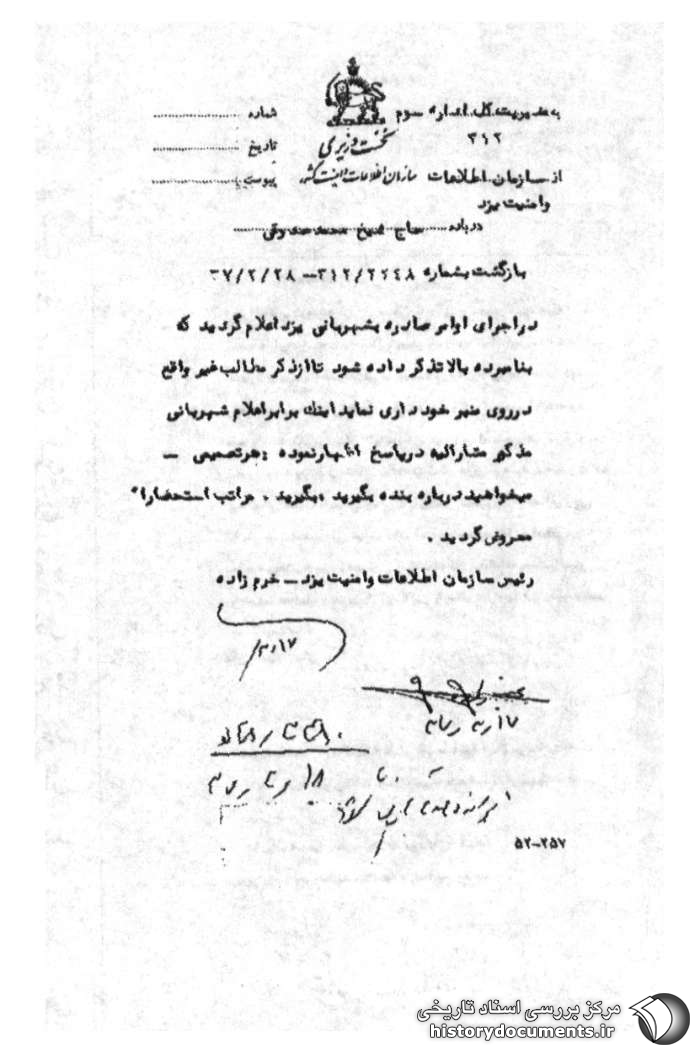 به مدیریت کل اداره سوم
۳۱۲
نخست وزیری
سازمان اطلاعات و امنیت کشور
شماره
تاریخ
پیوست
از سازمان اطلاعات
و امنیت یزد
درباره حاج شیخ محمد صدوقی
بازگشت بشماره ۳۱۲/۲۲۴۸ – ۳۷/۲/۲۸
در اجرای اوامر صادره بشهربانی یزد اعلام گردید که
بنامبرده بالا تذکر داده شود تا از ذکر مطالب غیر واقع
در روی منبر خودداری نماید اینک برابر اعلام شهربانی
مذکور مشارالیه در پاسخ اظهار نموده : هر تصمیمی –
میخواهید درباره بنده بگیرید ، بگیرید . مراتب استحضارا"
معروض گردید .
رئیس سازمان اطلاعات و امنیت یزد – خرم زاده
۵۲-۲۵۷
مرکز بررسی اسناد تاریخی
historydocuments.ir